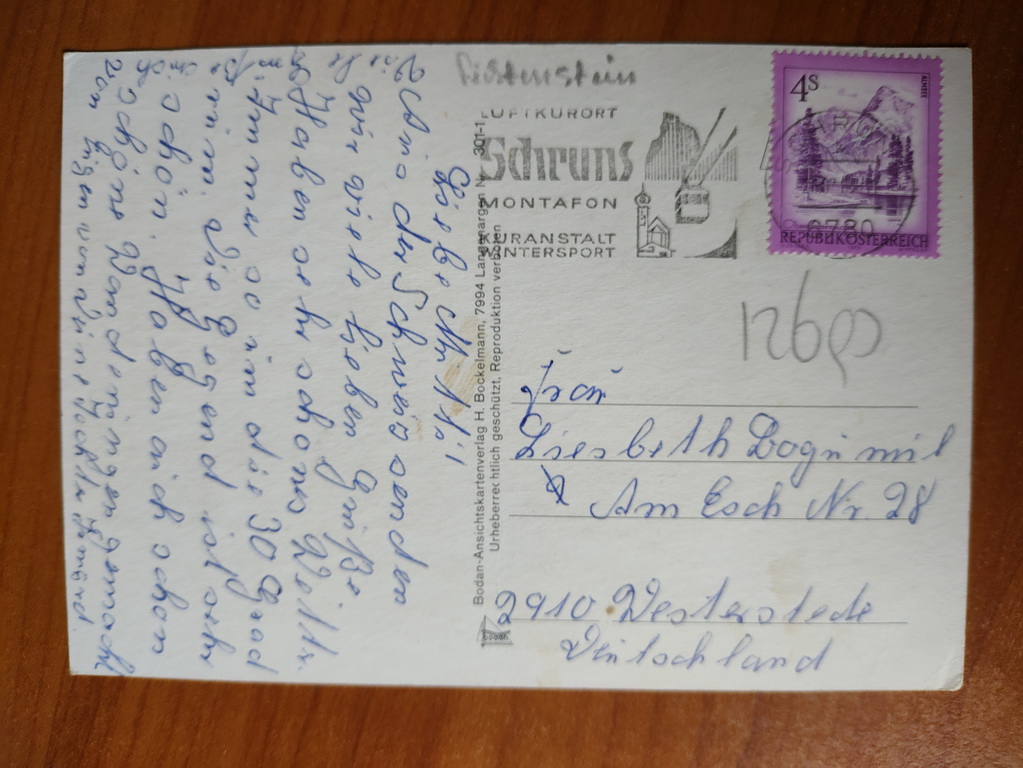 Lichtenstein
LUFTKURORT
Schruns
MONTAFON
KURANSTALT
WINTERSPORT
4S
ALMSEE
6780
REPUBLIK ÖSTERREICH
Liebe Mutti!
Aus der Schweiz senden
wir viele liebe Grüße
Haben sehr schönes Wetter.
Immer so um die 30 Grad
rum. Die Gegend ist sehr
schön. Haben auch schon
schöne Wanderungen gemacht
von
Bodan-Ansichtskartenverlag H. Bockelmann, 7994 Langenargen Nr. 301-1
Urheberrechtlich geschützt, Reproduktion verboten
Frau
Liesbeth Dogumil
Am Esch Nr. 28
2910 Westerstede
Deutschland